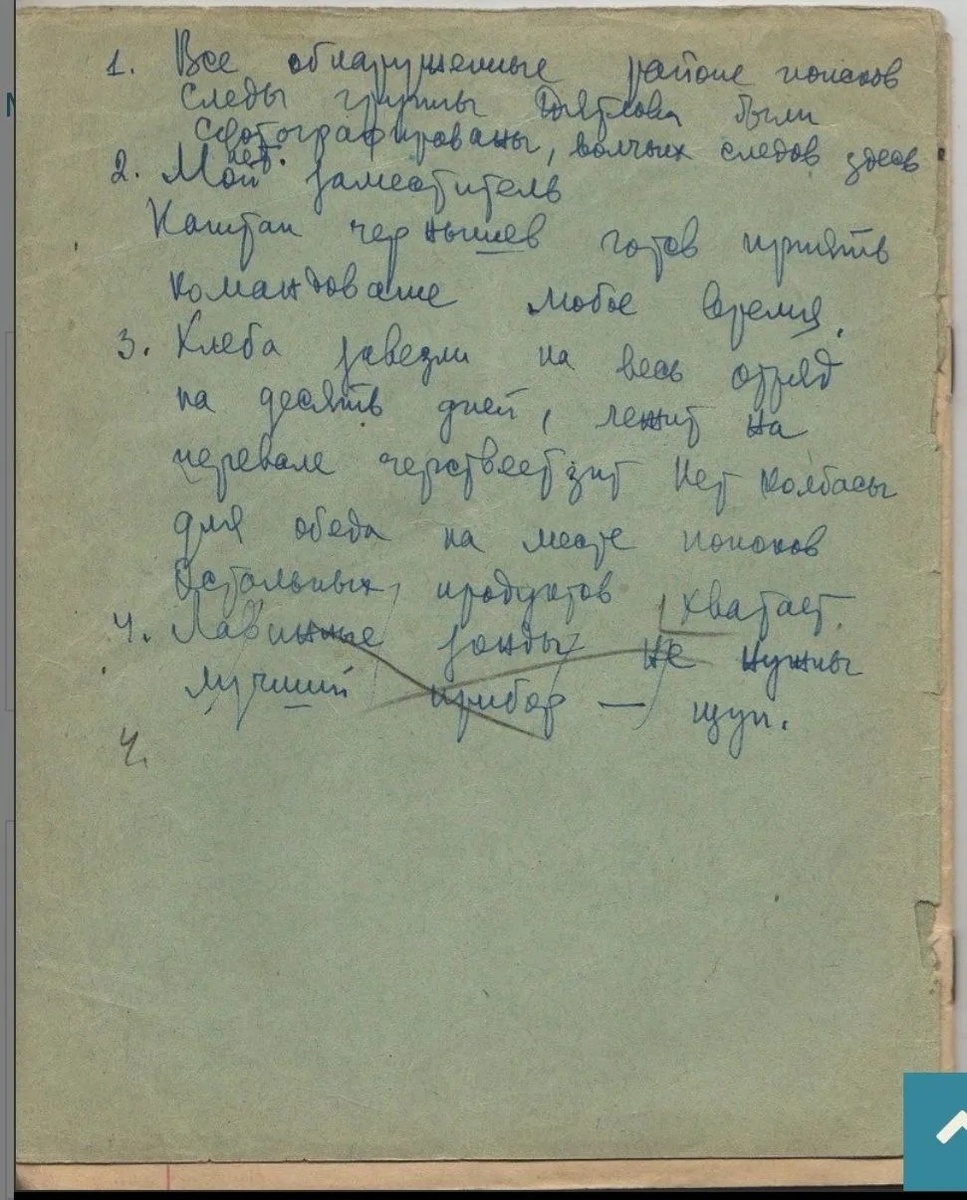 1. Все обнаруженные районе поисков
следы группы Дятлова были
сфотографированы, волчьих следов здесь
нет.
2. Мой заместитель
Каптан чернышев готов принять
командование любое время.
3. Хлеба завезли на весь отряд
на десять дней, лежит на
перевале черствеет зпт Нет колбасы
для обеда на месте поисков
Остальных продуктов хватает.
4. Лавинные зонды не нужны
лучший прибор — щуп.
4.